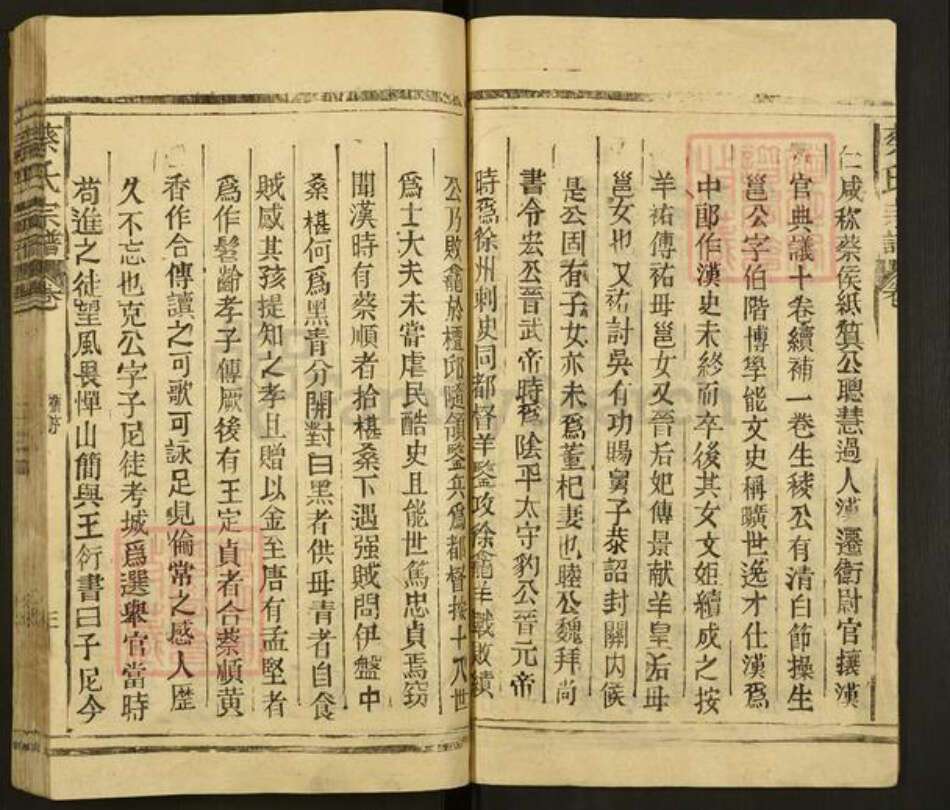 仁咸称蔡侯紙質公聰慧過人漢遷衛尉官攘漢
官典議十卷續補一卷生稜公有清白節操生
邕公字伯階博學能文史稱曠世逸才仕漢爲
中郎作漢史未終而卒後其女文姬續成之按
羊祐傳祐毋邕女又晉后妃傳景献羊皇后毋
邕女也又祐討吳有功賜舅子恭詔封關内侯
是公固有子女亦未爲董杞妻也睦公魏拜尚
書令宏丕晉武帝時爲陰平太守豹公晉元帝
時爲徐州刺史同都督羊鑒攻徐龕羊戰敗績
公乃敗龕於檀邱隨領鑒兵爲都督按十八世
爲士大夫未甞虐民酷史且能世篤忠貞焉窈
聞漢時有蔡順者拾椹桑下遇强賊問伊盤中
桑椹何爲黑青分開對曰黑者供毋青者自食
賊感其孩提知之孝且贈以金至唐有孟堅者
爲作髫齡孝子傳厥後有王定貞者合蔡順黄
香作合傳讀之可歌可詠足見倫常之感人歴
久不忘也克公字子尼徒考城爲選舉官當時
苟進之徒望風畏憚山簡與王衍書曰子尼今
蔡氏宗譜 卷
舊序
三